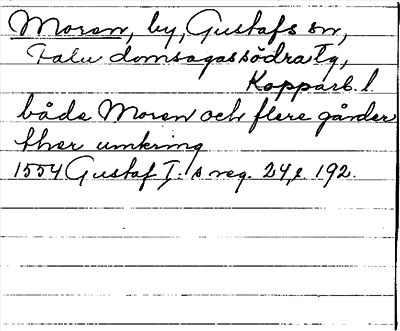 Moren, by, Gustafs sn,
Falu domsagas södra Tg,
Kopparb. l.
både Moren och flere gårder
ther umkring
1554 Gustaf I:s reg. 24, s. 192.